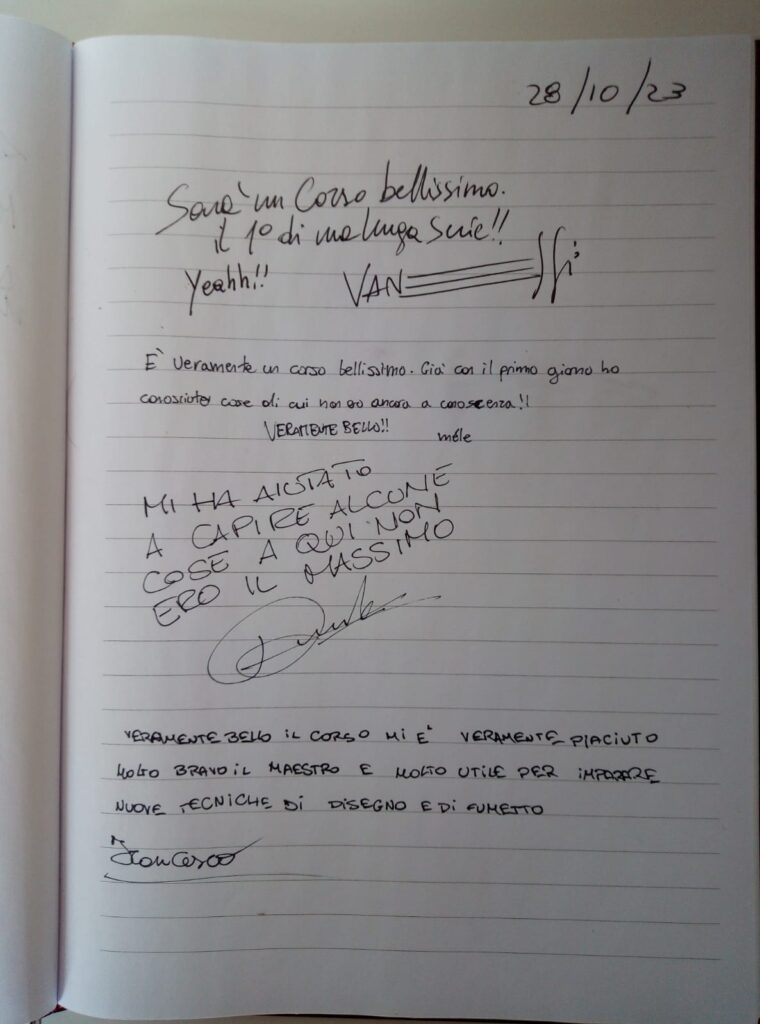 28/10/23
Sarà un Corso bellissimo.
il 1º di una lunga serie!!
Yeahh!!
VAN
È veramente un corso bellissimo. Già con il primo giorno ho
conosciuto cose di cui non ero ancora a conoscenza!!
VERAMENTE BELLO!!
MI HA AIUTATO
A CAPIRE ALCUNE
COSE A QUI NON
ERO IL MASSIMO
VERAMENTE BELLO IL CORSO MI E' VERAMENTE PIACIUTO
MOLTO BRAVO IL MAESTRO E MOLTO UTILE PER IMPARARE
NUOVE TECNICHE DI DISEGNO E DI FUMETTO
Francesco